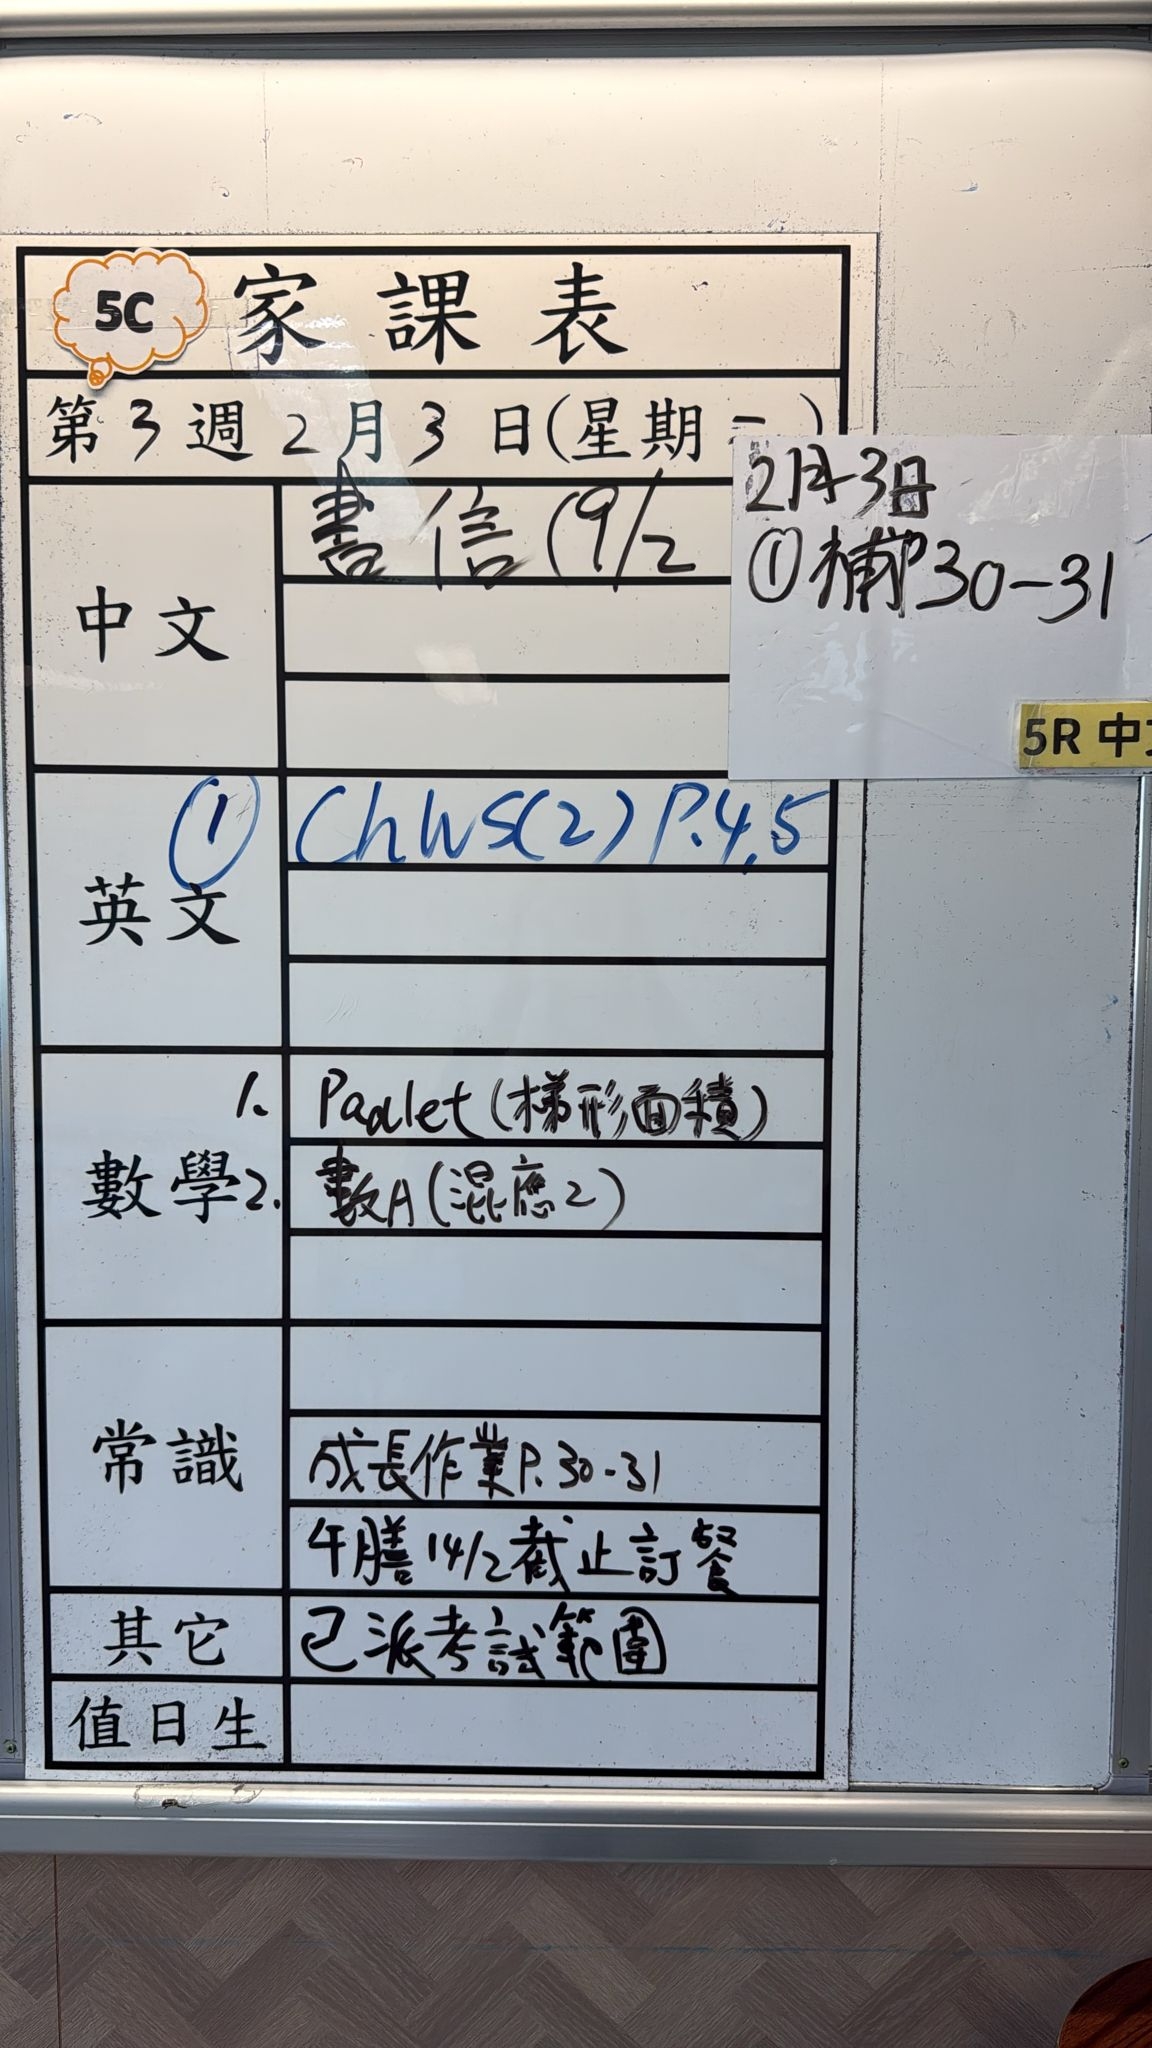 5C 家課表
第3週2月3日(星期二)
中文
書信(9/2
2月3日
①補P30-31
5R 中
英文
① Ch WS(2) P.4,5
數學
1. Padlet (梯形面積)
2. 數A (混應2)
常識
成長作業P.30-31
午膳14/2截止訂餐
其它
已派考試範圍
值日生